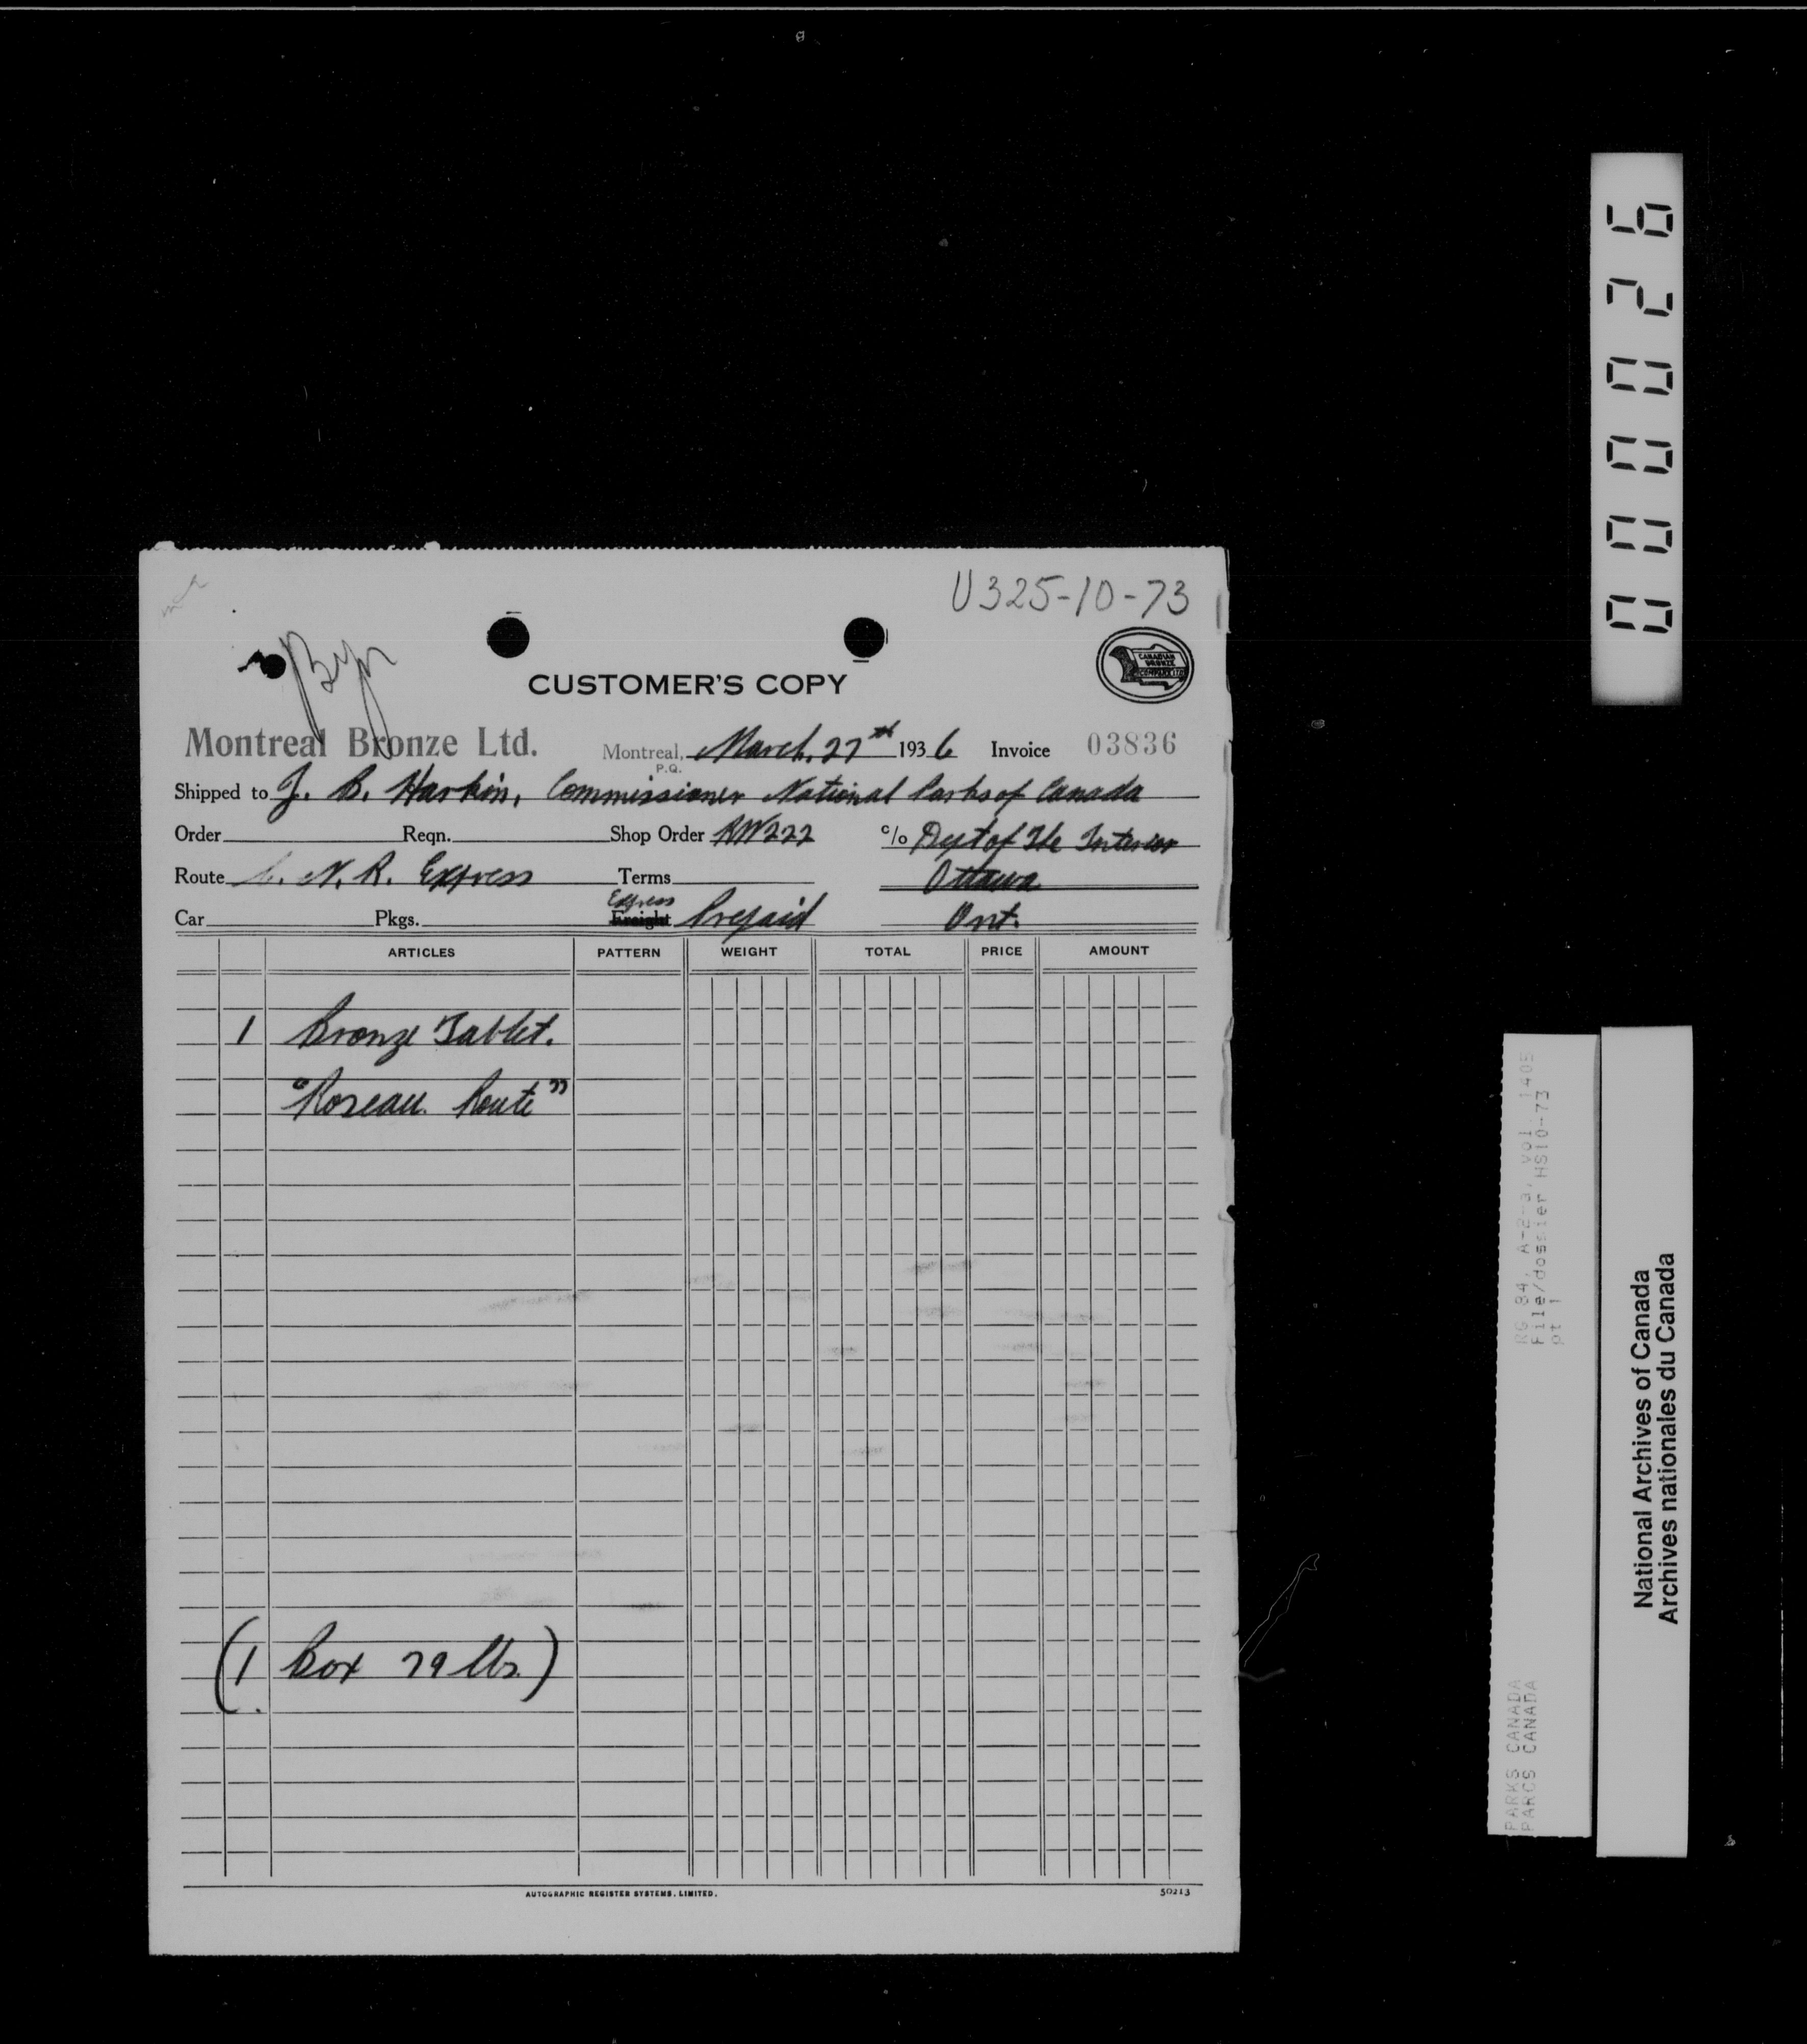 U325-10-73
CANADIAN
BRONZE
COMPANY LTD
CUSTOMER'S COPY
Montreal Bronze Ltd. Montreal, P.Q. March, 27th 1936 Invoice 03836
Shipped to J. B. Harkin, Commissioner National Parks of Canada
Order Reqn. Shop Order RW222 c/o Dept of The Interior
Route C. N. R. Express Terms Ottawa
Car Pkgs. Express Freight Prepaid Ont.
ARTICLES PATTERN WEIGHT TOTAL PRICE AMOUNT
1 Bronze Tablet.
"Roseau Route"
(1 Box 79 lbs.)
AUTOGRAPHIC REGISTER SYSTEMS, LIMITED. 50213
000026
RG 84, A-2-a, vol. 1405
File/dossier HS10-73
pt 1
PARKS CANADA
PARCS CANADA
National Archives of Canada
Archives nationales du Canada